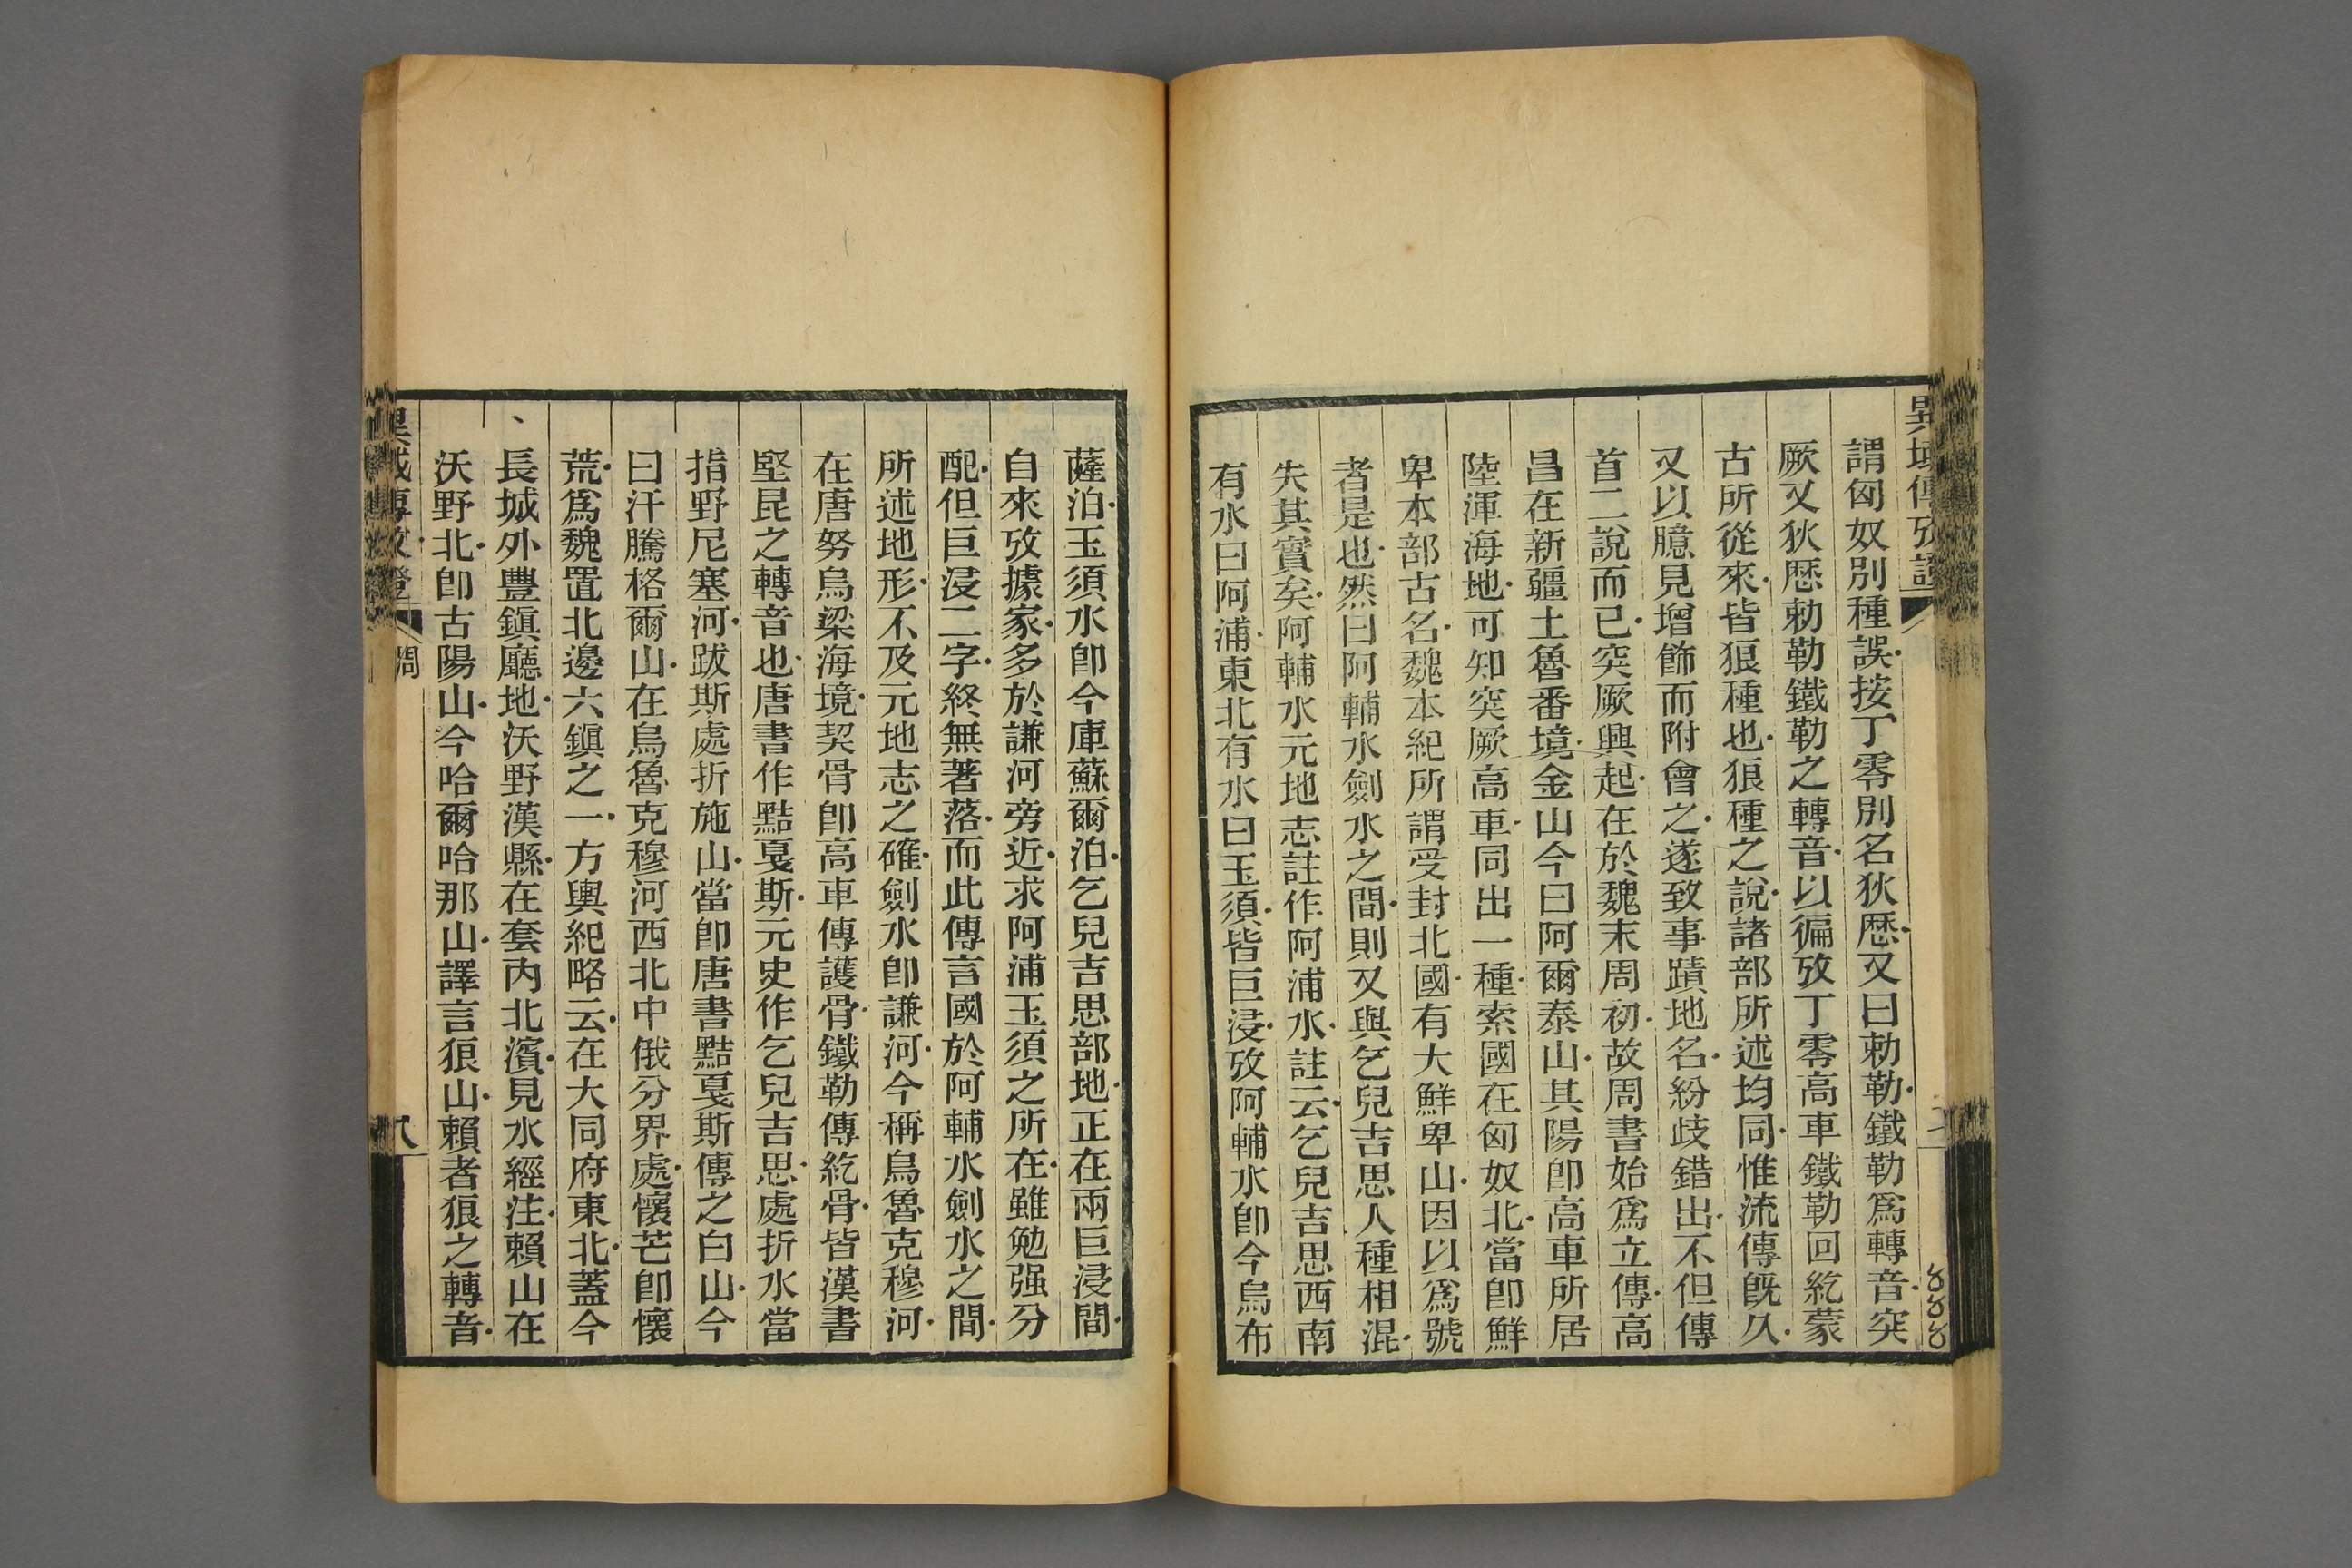 異域傳攷證
謂匈奴別種誤按丁零別名狄歷又曰勅勒鐵勒爲轉音突
厥又狄歷勅勒鐵勒之轉音以徧攷丁零高車鐵勒回紇蒙
古所從來皆狼種也狼種之說諸部所述均同惟流傳旣久
又以臆見增飾而附會之遂致事蹟地名紛歧錯出不但傳
首二說而已突厥興起在於魏末周初故周書始爲立傳高
昌在新疆土魯番境金山今曰阿爾泰山其陽卽高車所居
陸渾海地可知突厥高車同出一種索國在匈奴北當卽鮮
卑本部古名魏本紀所謂受封北國有大鮮卑山因以爲號
者是也然曰阿輔水劍水之間則又與乞兒吉思人種相混
失其實矣阿輔水元地志註作阿浦水註云乞兒吉思西南
有水曰阿浦東北有水曰玉須皆巨浸攷阿輔水卽今烏布
薩泊玉須水卽今庫蘇爾泊乞兒吉思部地正在兩巨浸間
自來攷據家多於謙河旁近求阿浦玉須之所在雖勉强分
配但巨浸二字終無著落而此傳言國於阿輔水劍水之間
所述地形不及元地志之確劍水卽謙河今稱烏魯克穆河
在唐努烏梁海境契骨卽高車傳護骨鐵勒傳紇骨皆漢書
堅昆之轉音也唐書作黠戛斯元史作乞兒吉思處折水當
指野尼塞河跋斯處折施山當卽唐書黠戛斯傳之白山今
曰汗騰格爾山在烏魯克穆河西北中俄分界處懷芒卽懷
荒爲魏置北邊六鎮之一方輿紀略云在大同府東北蓋今
長城外豐鎮廳地沃野漢縣在套內北濱見水經注賴山在
沃野北卽古陽山今哈爾哈那山譯言狼山賴者狼之轉音
異域傳攷證
八